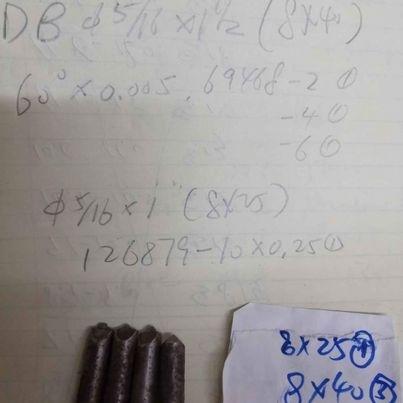 DB φ 5/16 × 1 1/2 (8×40)
60° × 0.005, 69468-2 ①
-4 ①
-6 ①
φ 5/16 × 1" (8×25)
126879-10×0.25 ①
8×25 ④
8×40 ③